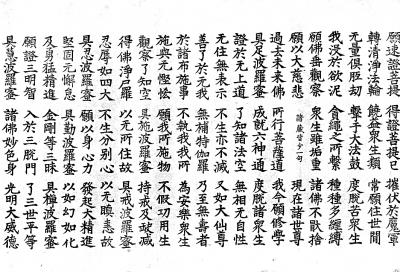 願速證菩提 得證菩提已 摧伏於魔軍
轉清淨法輪 饒益衆生類 常願住世間
无量俱胝劫 擊于大法鼓 度脫苦衆生
我没於欲泥 貪繩之所繫 種種多纏縛
願佛垂觀察 衆生雖垢重 諸佛不猒捨
願以大慈悲 諸藏皆少一句 現在諸世尊
過去未來佛 所行菩薩道 我今願修學
具足波羅蜜 成就六神通 度脫諸衆生
證於无上道 了知諸法空 無相无自性
无住無表示 不生亦不滅 又如大仙尊
善了於无我 無補特伽羅 乃至無壽者
於諸布施事 不執我我所 為安樂衆生
施與无慳悋 願我所施物 不假功用生
觀察了知空 具施波羅蜜 持戒及破減
得佛淨尸羅 以无所住故 具戒波羅蜜
忍辱如四大 不生分別心 以无瞋恚故
具忍波羅蜜 願以身心力 發起大精進
堅固无懈怠 具勤波羅蜜 以如幻如化
及勇猛精進 金剛等三昧 具禪波羅蜜
願證三明智 入於三脫門 了三世平等
具慧波羅蜜 諸佛妙色身 光明大威德